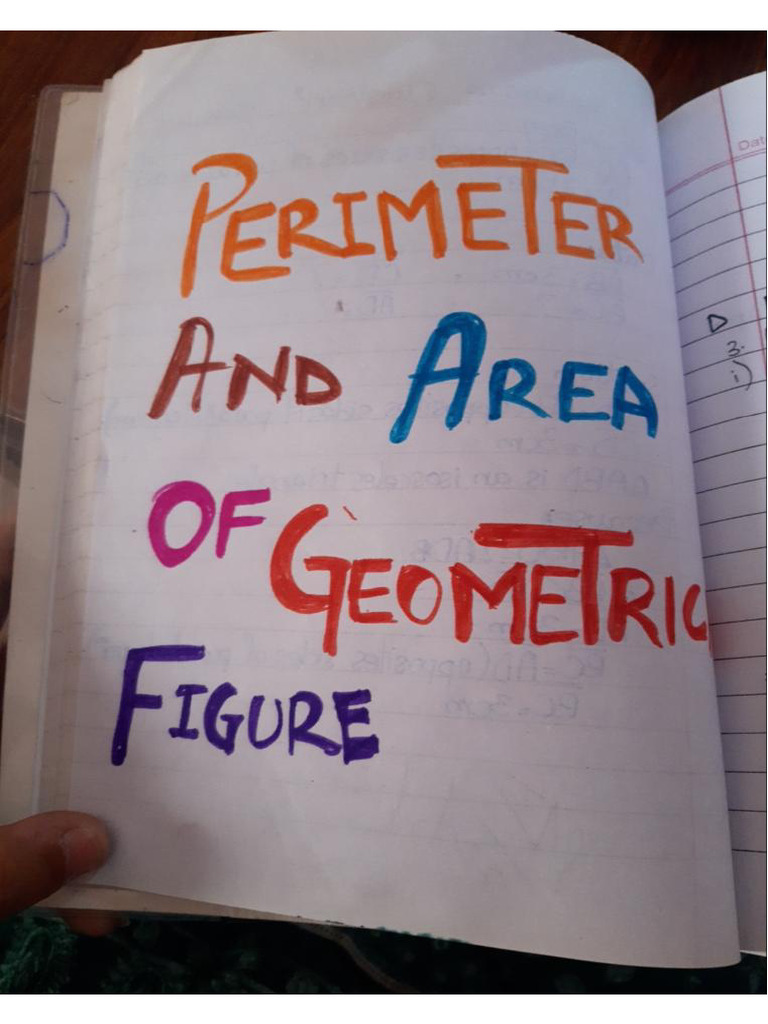 PERIMETER
AND AREA
OF GEOMETRIC
FIGURE
Dat
3.
i)